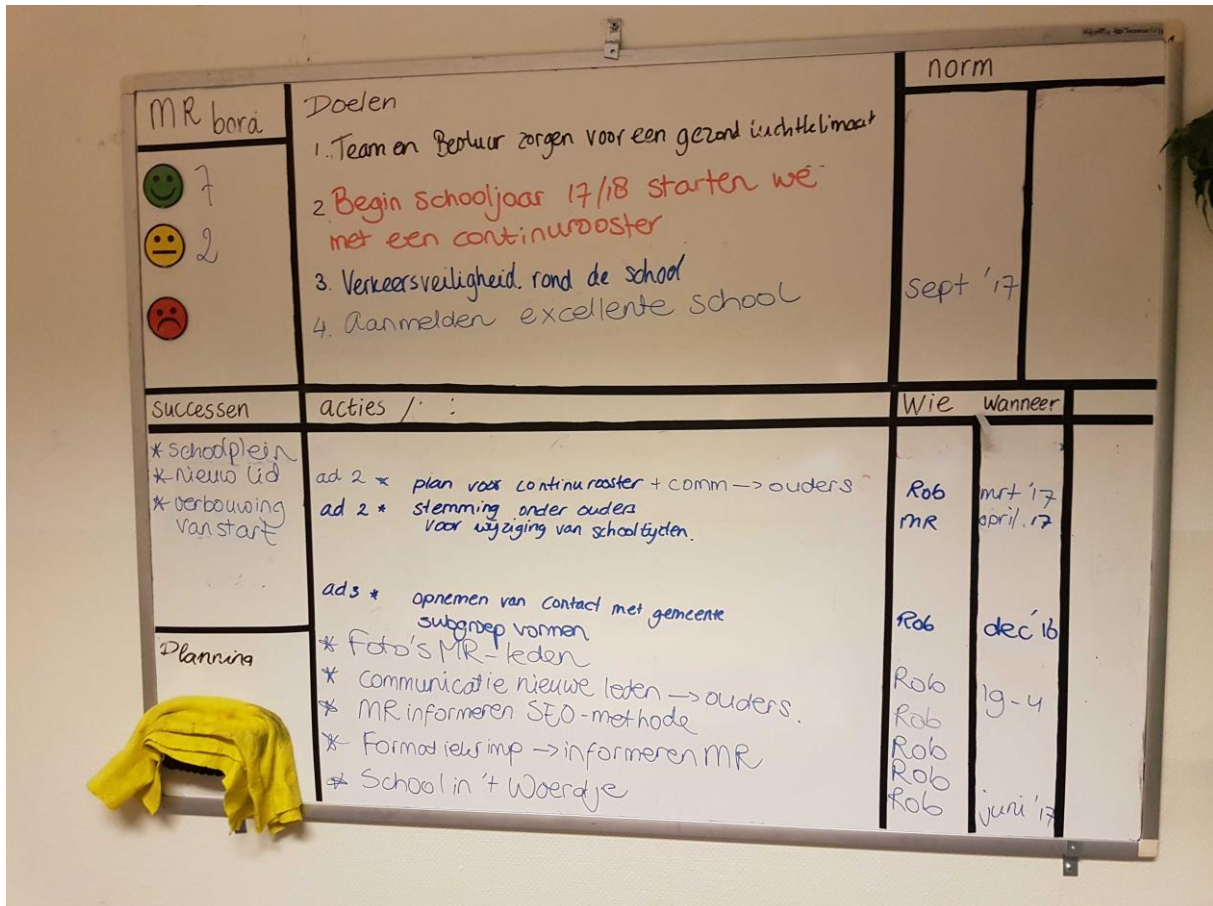 MR bord
7
2
Doelen
1. Team en Bestuur zorgen voor een gezond luchtklimaat
2 Begin schooljaar 17/18 starten we
met een continurooster
3. Verkeersveiligheid rond de school
4. Aanmelden excellente school
norm
sept '17
successen
* schoolplein
* nieuw lid
* verbouwing
van start
Planning
acties / :
ad 2 * plan voor continurooster + comm → ouders
ad 2 * stemming onder ouders
voor wijziging van schooltijden.
ad 3 * opnemen van contact met gemeente
subgroep vormen
* Foto's MR-leden
* communicatie nieuwe leden → ouders.
* MR informeren SEO-methode
* → informeren MR
* School in 't Woerdje
Wie wanneer
Rob mrt '17
MR april. 17
Rob dec '16
Rob 19-4
Rob
Rob
Rob
Rob juni '17